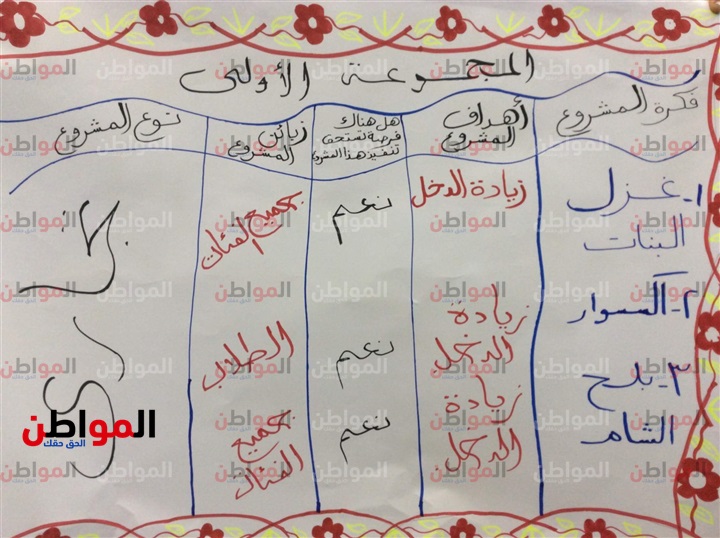 المجموعة الأولى
فكرة المشروع
أهداف
المشروع
هل هناك
فرصة تستحق
تنفيذ هذا المشروع
زبائن
المشروع
نوع المشروع
١- غزل
البنات
زيادة الدخل
نعم
جميع الفئات
٢- اكسسوار
زيادة
الدخل
نعم
الطلاب
٣- بلح
الشام
زيادة
الدخل
نعم
جميع
الفئات
المواطن
الحق حقك